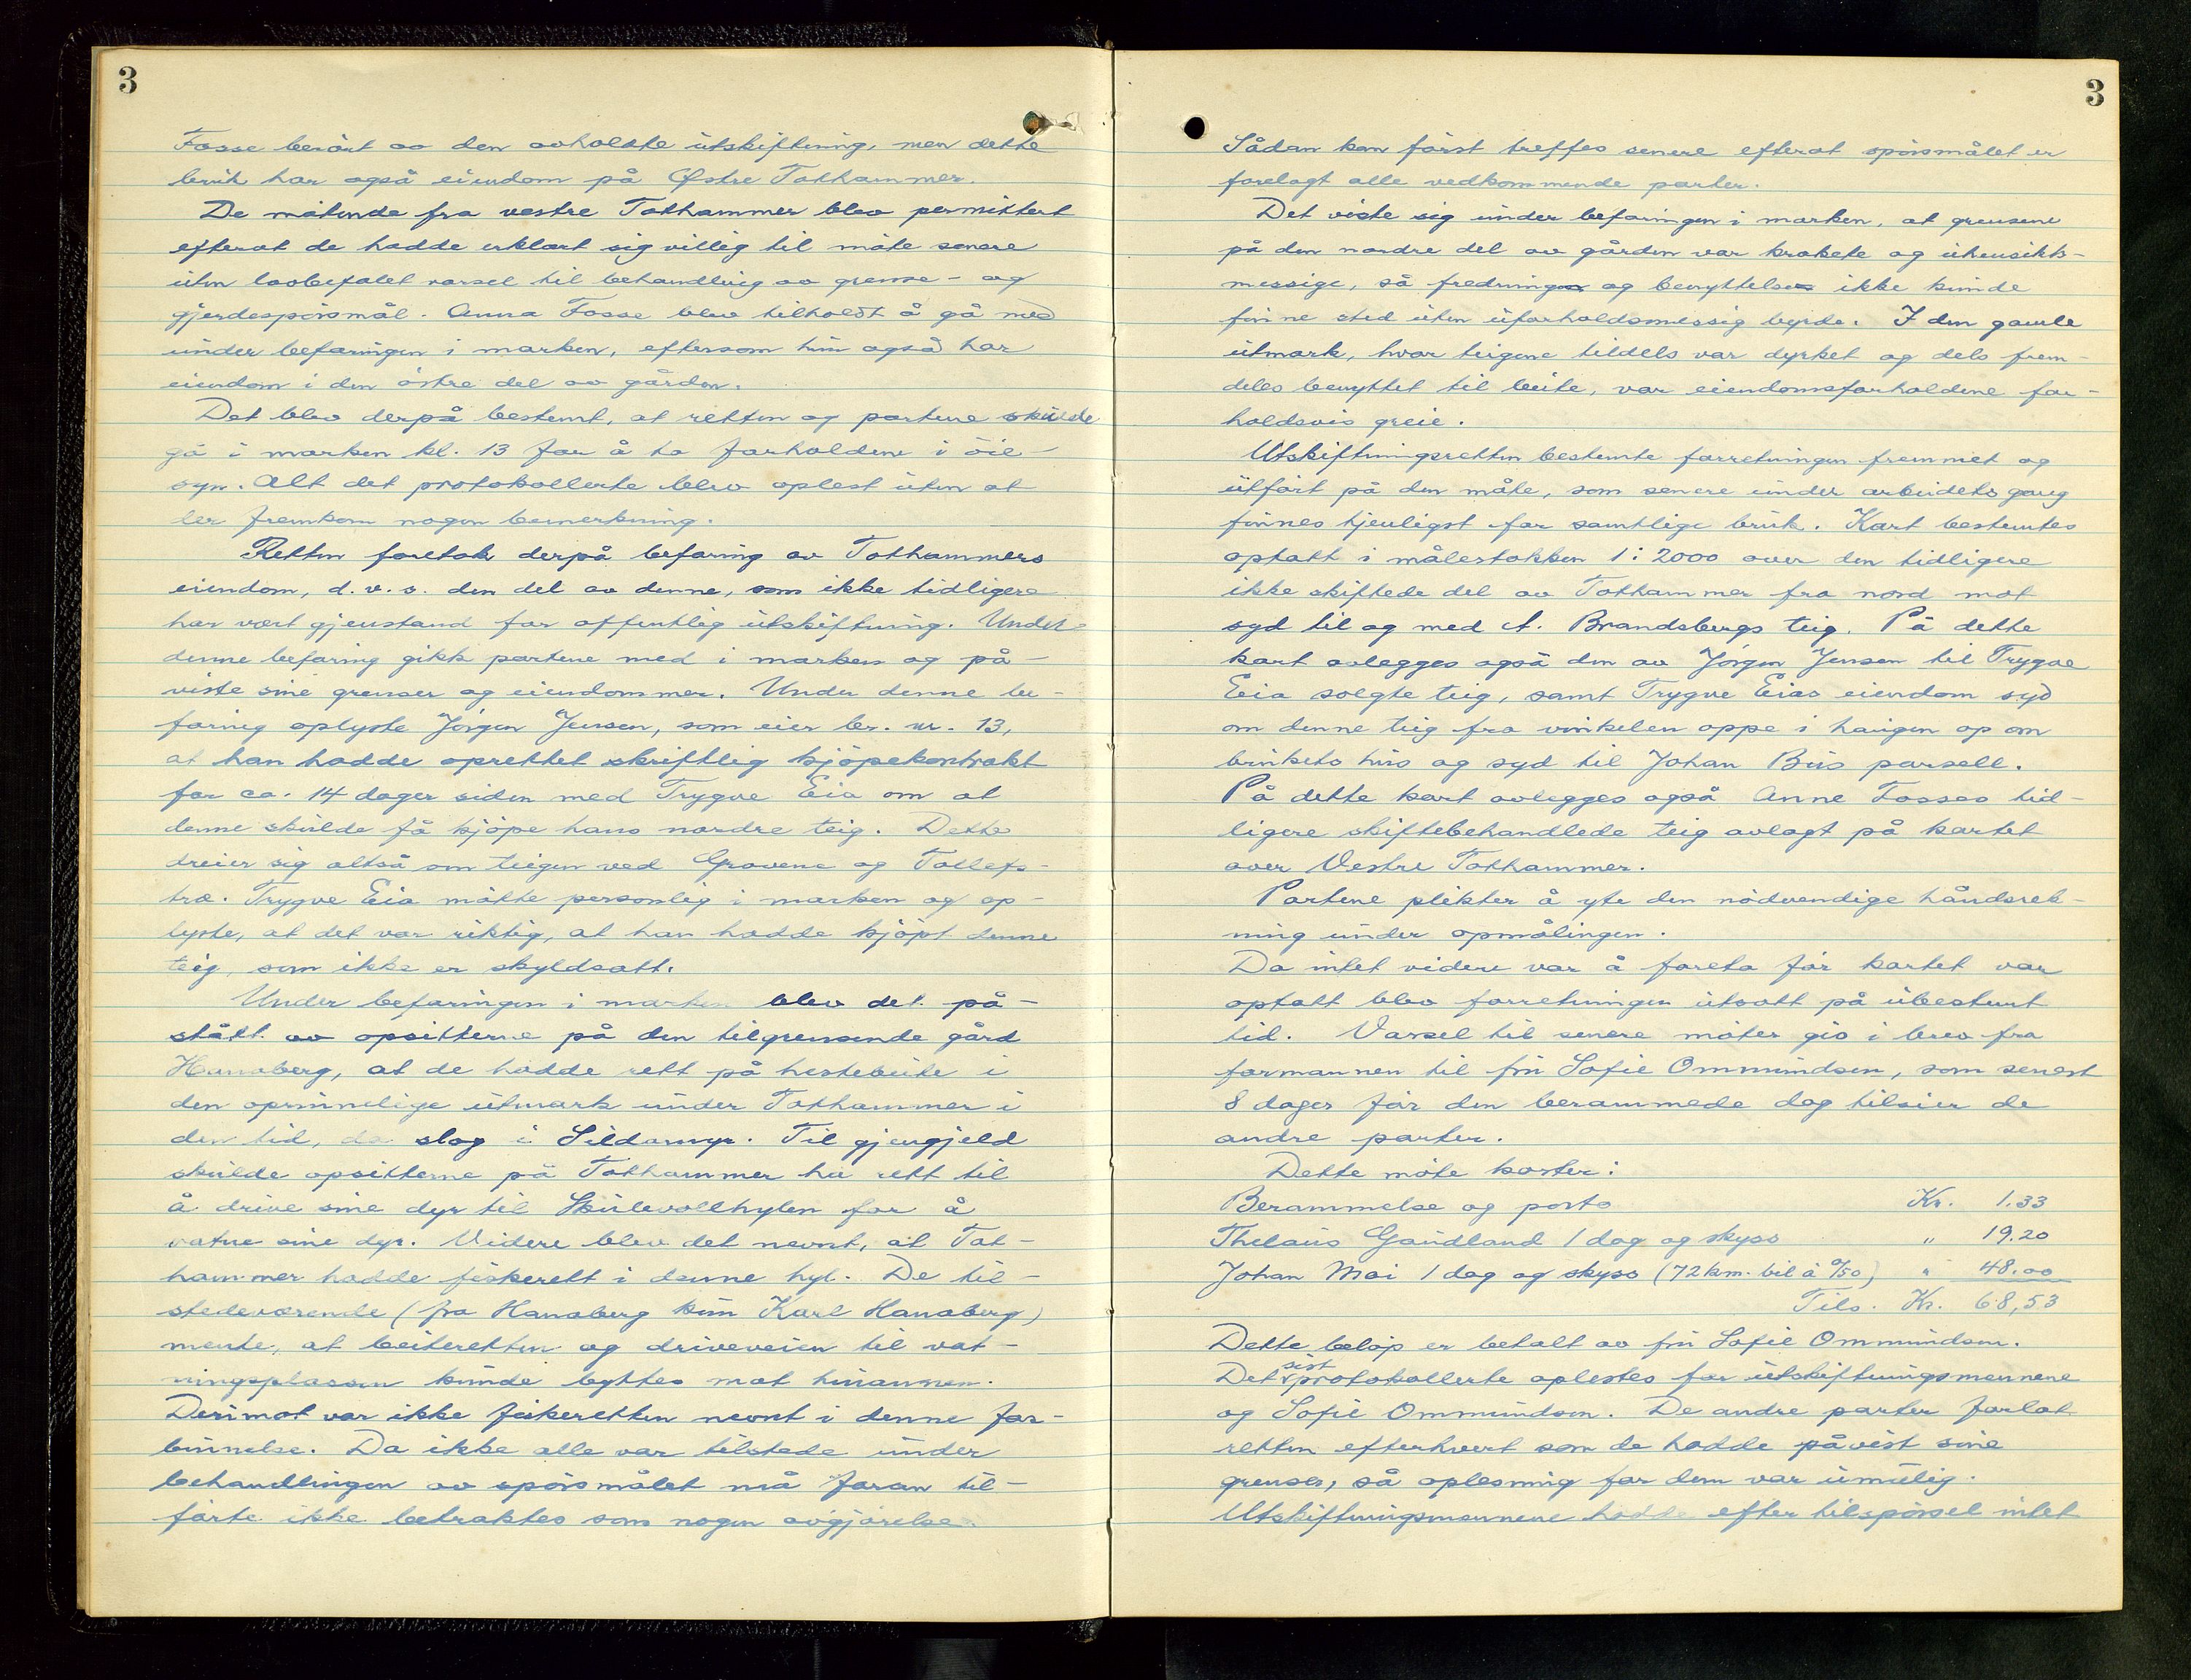 3
Fosse berört av den avholdte utskiftning, men dette
bruk har også eiendom på Østre Tothammer.
De møtende fra vestre Tothammer blev permittert
efterat de hadde erklært sig villig til møte senere
uten lovbefalet varsel til behandling av grense- og
gjerdespörsmål. Anna Fosse blev tilholdt å gå med
under befaringen i marken, eftersom hun også har
eiendom i den östre del av gården.
Det blev derpå bestemt, at retten og partene skulde
gå i marken kl. 13 for å ta forholdene i öie-
syn. Alt det protokollerte blev oplest uten at
der fremkom nogen bemerkning.
Retten foretok derpå befaring av Tothammers
eiendom, d.v.s. den del av denne, som ikke tidligere
har vært gjenstand for offentlig utskiftning. Under
denne befaring gikk partene med i marken og på-
viste sine grenser og eiendommer. Under denne be-
faring oplyste Jörgen Jensen, som eier br. nr. 13,
at han hadde oprettet skriftlig kjöpekontrakt
for ca. 14 dager siden med Trygve Eia om at
denne skulde få kjöpe hans nordre teig. Dette
dreier sig altså om teigen ved Grovene og Tollefs-
træ. Trygve Eia møtte personlig i marken og op-
lyste, at det var riktig, at han hadde kjöpt denne
teig, som ikke er skyldsatt.
Under befaringen i marken blev det på-
stått av opsitterne på den tilgrensende gård
Hanaberg, at de hadde rett på hestebeite i
den oprinnelige utmark under Tothammer i
den tid, de slog i Sildamyr. Til gjengjeld
skulde opsitterne på Tothammer ha rett til
å drive sine dyr til Skulevollhylen for å
vatne sine dyr. Videre blev det nevnt, at Tot-
hammer hadde fiskerett i denne hyl. De til-
stedeværende (fra Hanaberg kun Karl Hanaberg)
mente, at beiteretten og driveveien til vat-
ningsplassen kunde byttes mot hinannen.
Derimot var ikke fiskeretten nevnt i denne for-
binnelse. Da ikke alle var tilstede under
behandlingen av spörsmålet må foran til-
förte ikke betraktes som nogen avgjörelse.
3
Sådan kan först treffes senere efterat spörsmålet er
forelagt alle vedkommende parter.
Det viste sig under befaringen i marken, at grensene
på den nordre del av gården var krokete og uhensikts-
messige, så fredning og benyttelse ikke kunde
finne sted uten uforholdsmessig byrde. I den gamle
utmark, hvor teigene tildels var dyrket og dels frem-
deles benyttet til beite, var eiendomsforholdene for-
holdsvis greie.
Utskiftningsretten bestemte forretningen fremmet og
utfört på den måte, som senere under arbeidets gang
finnes tjenligst for samtlige bruk. Kart bestemtes
optatt i målestokken 1:2000 over den tidligere
ikke skiftede del av Tothammer fra nord mot
syd til og med A. Brandsbergs teig. På dette
kart avlegges også den av Jörgen Jensen til Trygve
Eia solgte teig, samt Trygve Eias eiendom syd
om denne teig fra vinkelen oppe i haugen op om
brukets hus og syd til Johan Bus parsell.
På dette kart avlegges også Anne Fosses tid-
ligere skiftebehandlede teig avlagt på kartet
over Vestre Tothammer.
Partene plikter å yte den nödvendige håndsrek-
ning under opmålingen.
Da intet videre var å foreta för kartet var
optatt blev forretningen utsatt på ubestemt
tid. Varsel til senere möter gis i brev fra
formannen til fru Sofie Ommundsen, som senest
8 dager för den berammede dag tilsier de
andre parter.
Dette möte koster:
Berammelse og porto Kr. 1.33
Thelaus Gaudland 1 dag og skyss " 19.20
Johan Moi 1 dag og skyss (72 km. bil à %50) " 48.00
Tils. Kr. 68,53
Dette belöp er betalt av fru Sofie Ommundsen.
Det sist protokollerte oplestes for utskiftningsmennene
og Sofie Ommundsen. De andre parter forlot
retten efterhvert som de hadde påvist sine
grenser, så oplesning for dem var umulig.
Utskiftningsmennene hadde efter tilspörsel intet